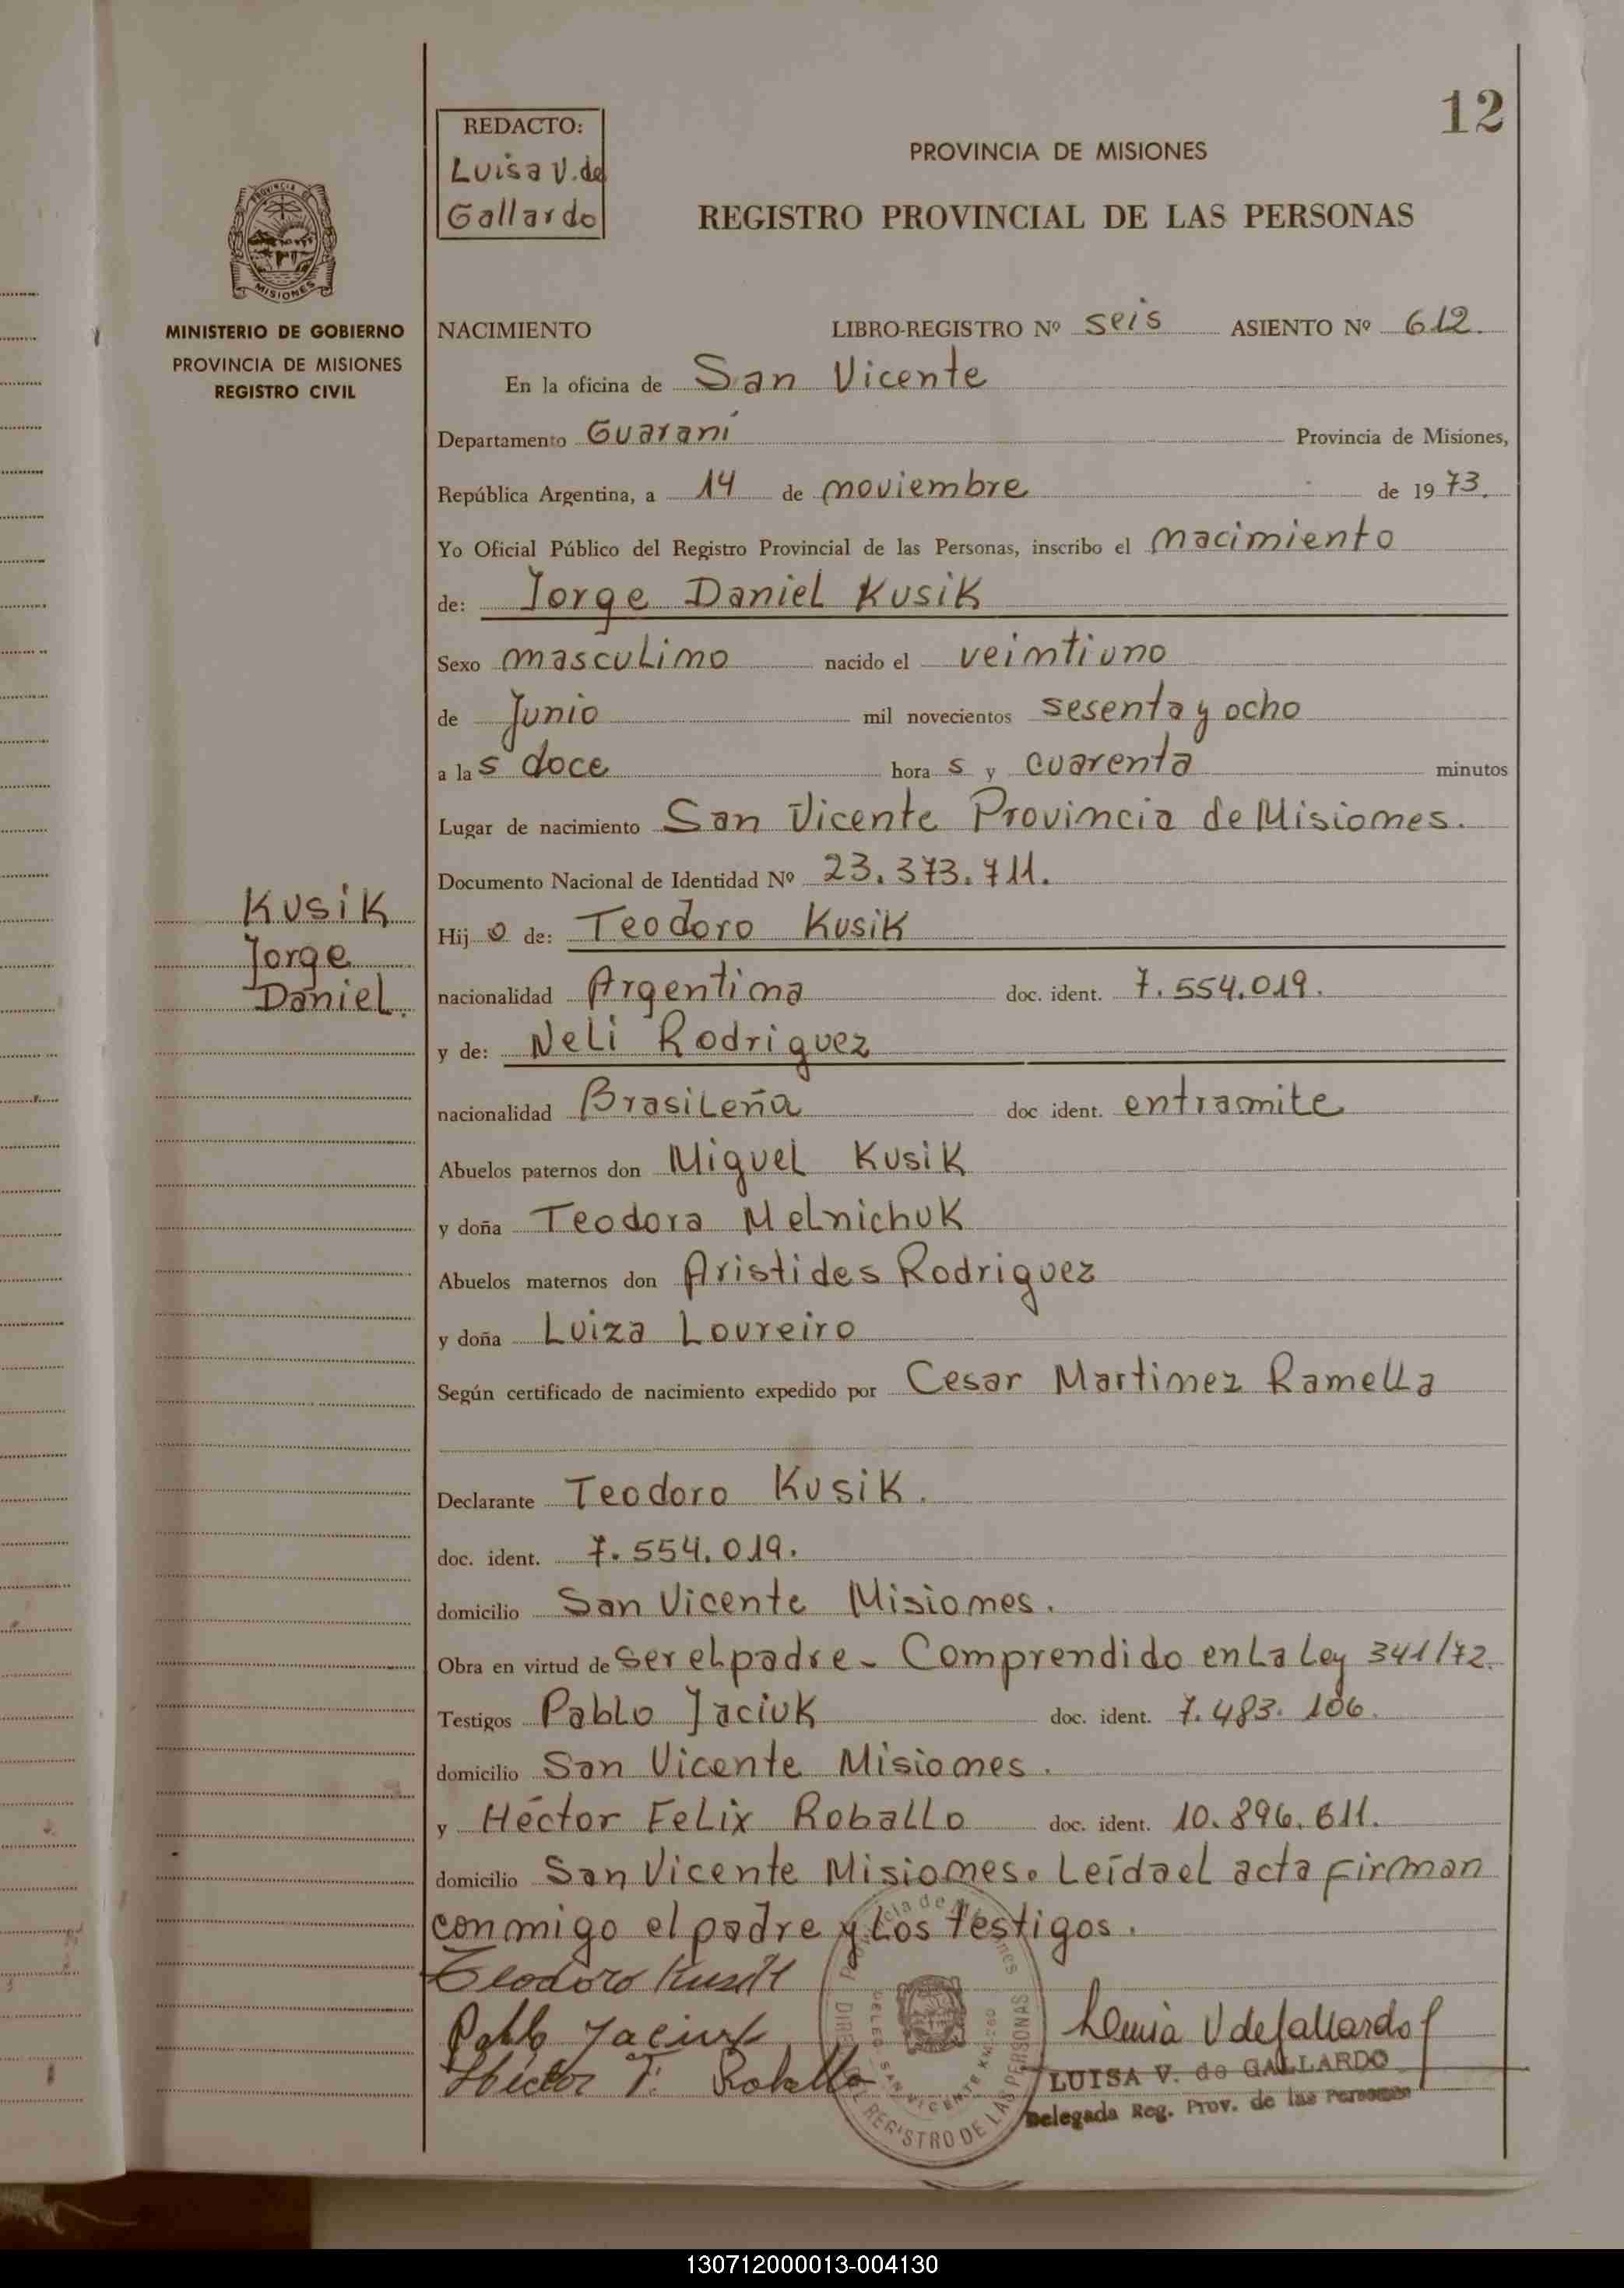 12
REDACTO:
Luisa V. de
Gallardo
PROVINCIA DE MISIONES
REGISTRO PROVINCIAL DE LAS PERSONAS
MISIONES
MINISTERIO DE GOBIERNO
PROVINCIA DE MISIONES
REGISTRO CIVIL
NACIMIENTO LIBRO-REGISTRO Nº seis ASIENTO Nº 612.
En la oficina de San Vicente
Departamento Guaraní Provincia de Misiones,
República Argentina, a 14 de noviembre de 1973.
Yo Oficial Público del Registro Provincial de las Personas, inscribo el nacimiento
de: Jorge Daniel Kusik
Sexo masculino nacido el veintiuno
de Junio mil novecientos sesenta y ocho
a las doce horas y cuarenta minutos
Lugar de nacimiento San Vicente Provincia de Misiones.
Documento Nacional de Identidad Nº 23.373.711.
Kusik
Jorge
Daniel.
Hijo de: Teodoro Kusik
nacionalidad Argentina doc. ident. 7.554.019.
y de: Neli Rodriguez
nacionalidad Brasileña doc ident. entramite
Abuelos paternos don Miguel Kusik
y doña Teodora Melnichuk
Abuelos maternos don Aristides Rodriguez
y doña Luiza Loureiro
Según certificado de nacimiento expedido por Cesar Martinez Ramella
Declarante Teodoro Kusik.
doc. ident. 7.554.019.
domicilio San Vicente Misiones.
Obra en virtud de ser el padre - Comprendido en la Ley 341/72.
Testigos Pablo Jaciuk doc. ident. 7.483.106.
domicilio San Vicente Misiones.
y Héctor Felix Roballo doc. ident. 10.896.611.
domicilio San Vicente Misiones. Leída el acta firman
conmigo el padre y los testigos.
Teodoro Kusik
Pablo Jaciuk
Héctor F. Roballo
Luisa V de Gallardo
LUISA V. de GALLARDO
Delegada Reg. Prov. de las Personas
REGISTRO DE LAS PERSONAS
130712000013-004130